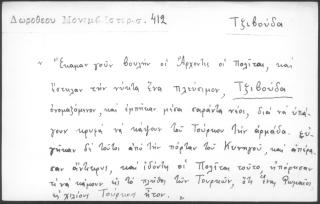 Δωροθέου Μονεμβ. Ἱστορ. σ. 412
Τζιβούδα
" Ἔκαμαν γοῦν βουλὴν οἱ Ἄρχοντες οἱ Πολῖται, καὶ
ἔστειλαν τὴν νύκτα ἕνα πλεύσιμον, Τζιβούδα
ὀνομαζόμενον, καὶ ἐμπῆκαν μέσα σαράντα νέοι, διὰ νὰ ὑπά-
γουν κρυφὰ νὰ κάψουν τοῦ Τούρκου τὴν ἁρμάδα. Εὐ-
γῆκαν δὲ τοῦτοι ἀπὸ τὴν πόρταν τοῦ Κυνηγοῦ, καὶ ἀπέρα-
σαν ἄντικρυς, καὶ ἰδόντες οἱ Πολῖται τοῦτο ἠπόρησαν
τί νὰ κάμουν εἰς τὸ πλῆθος τῶν Τουρκῶν, ὅτι ἕνας Ῥωμαῖος
χιλίους Τούρκους ἦτον. "